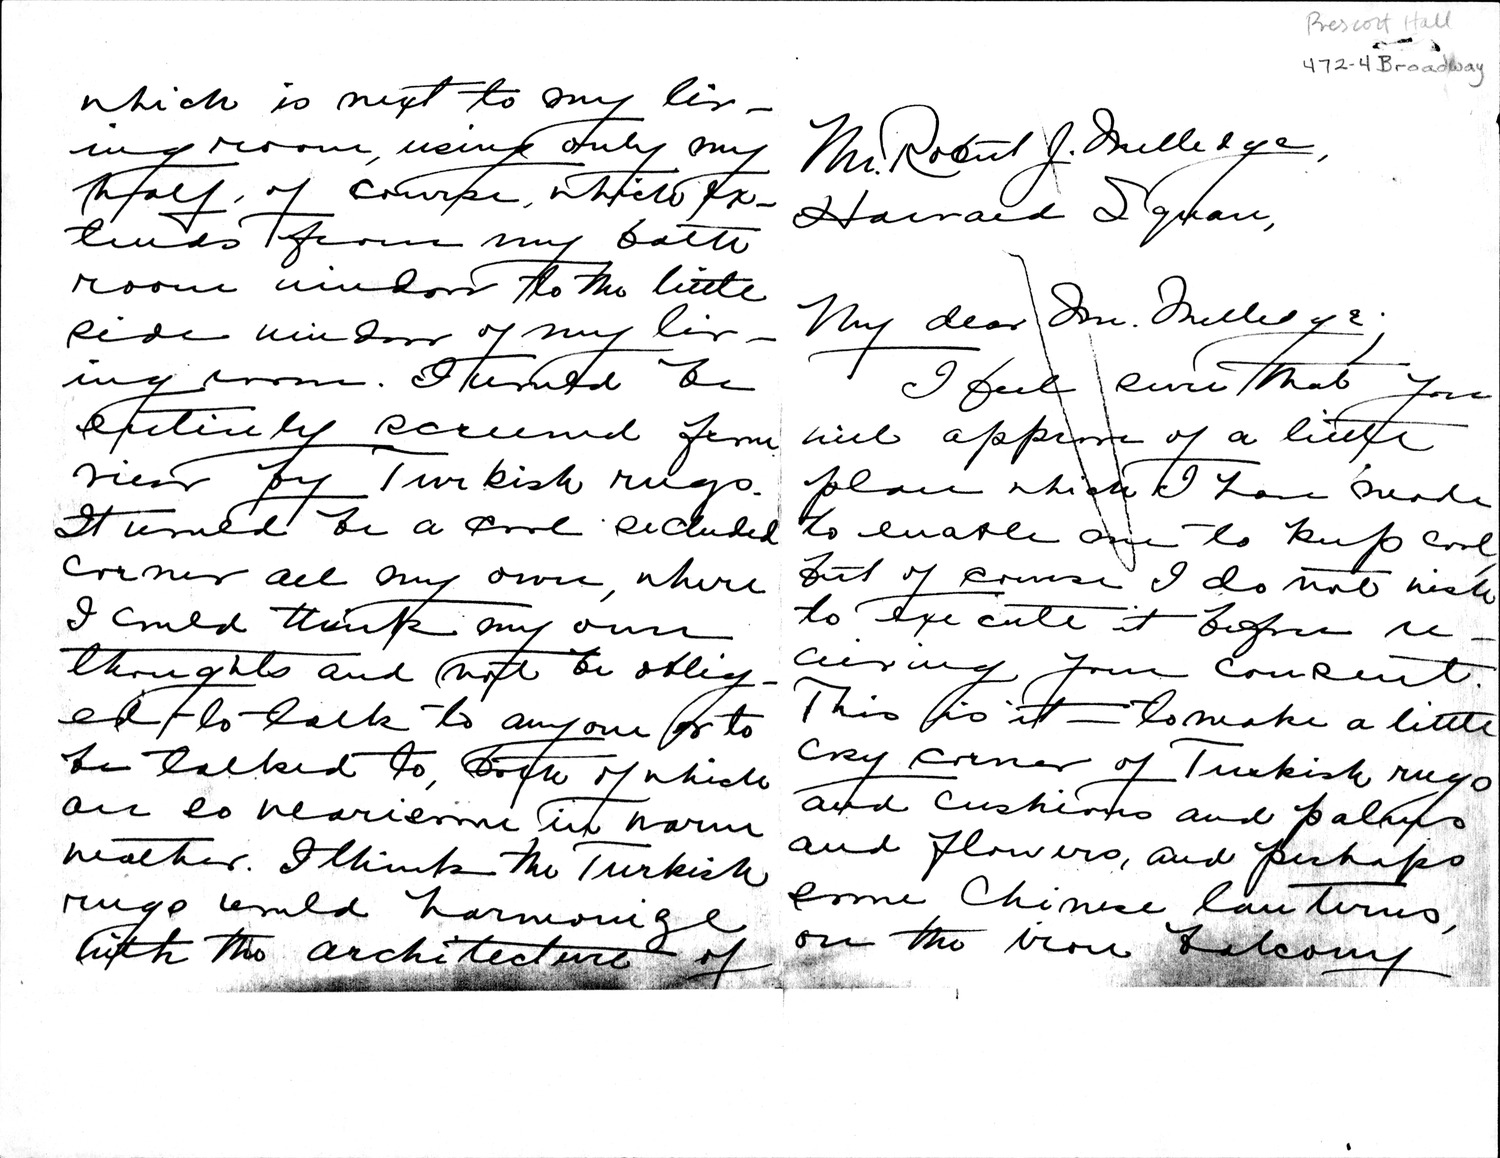 Prescott Hall
472-4 Broadway
Mr. Robert J. Melledge,
Harvard Square,
My dear Mr. Melledge;
I feel sure that you
will approve of a little
plan which I have made
to enable me to keep cool,
but of course I do not wish
to execute it before re-
ceiving your consent.
This is it — to make a little
cosy corner of Turkish rugs
and cushions and palms
and flowers, and perhaps
some Chinese lanterns,
on the iron balcony
which is next to my liv-
ing room, using only my
half, of course, which ex-
tends from my bath
room window to the little
side window of my liv-
ing room. I would be
entirely screened from
view by Turkish rugs.
It would be a cool secluded
corner all my own, where
I could think my own
thoughts and not be oblig-
ed to talk to anyone or to
be talked to, both of which
are so wearisome in warm
weather. I think the Turkish
rugs would harmonize
with the architecture of